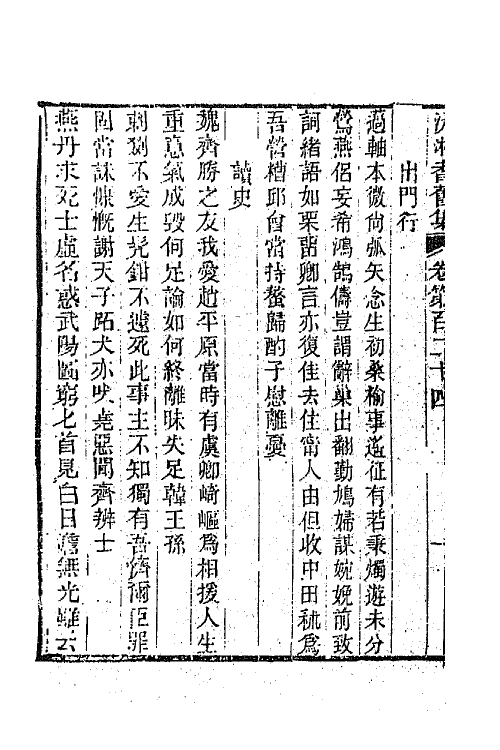 沅湘耆舊集 卷第百二十四 一
出門行
薖軸本微尚弧矢念生初桑榆事遙征有若秉燭遊未分
鶯燕侶妄希鴻鵠儔豈謂辭巢出翻勤鳩婦謀婉娩前致
詞緒語如栗畱卿言亦復佳去住甯人由但收中田秫為
吾營糟邱自當持螯歸酌子慰離憂
讀史
魏齊勝之友我愛趙平原當時有虞卿崎嶇為相援人生
重意氣成毀何足論如何終離昧失足韓王孫
刺猘不愛生髡鉗不遽死此事主不知獨有吾儕爾臣罪
固當誅慷慨謝天子跖犬亦吠堯惡聞齊辨士
燕丹求死士虛名惑武陽圖窮匕首見白日澹無光雖云